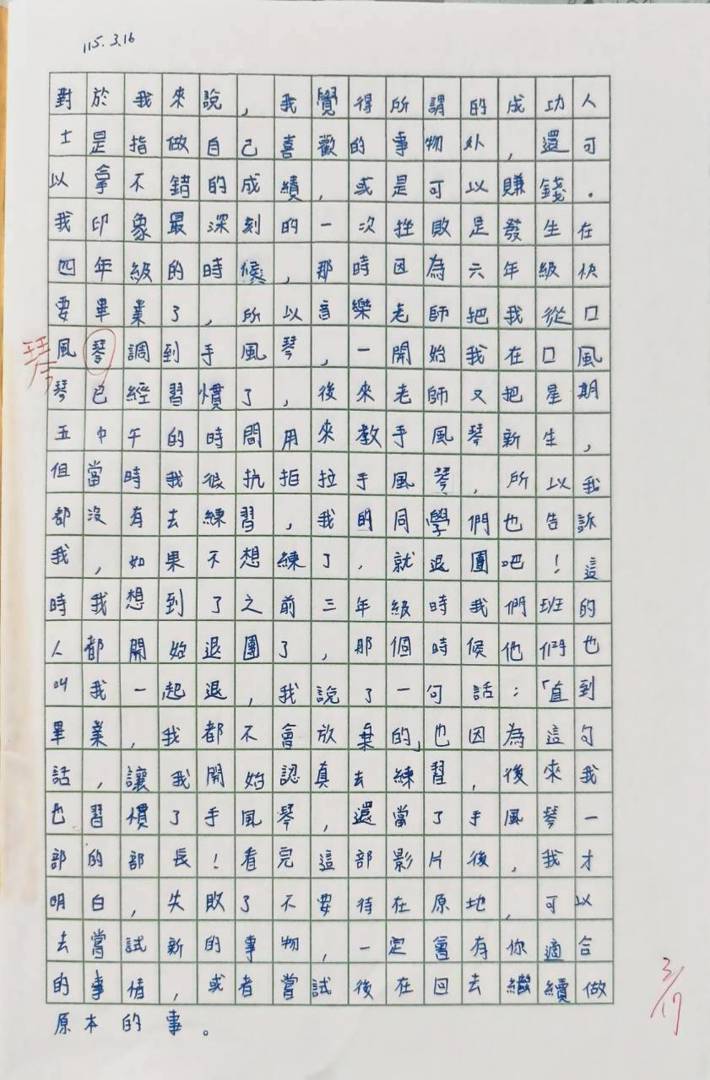 115.3.16
對於我來說，我覺得所謂的成功人
士是指做自己喜歡的事物外，還可
以拿不錯的成績，或是可以賺錢。
我印象最深刻的一次挫敗是發生在
四年級的時候，那時因為六年級快
要畢業了，所以音樂老師把我從口
風琴調到手風琴，一開始我在口風
琴
琴已經習慣了，後來老師又把星期
五中午的時間用來教手風琴新生，
但當時我很抗拒拉手風琴，所以我
都沒有去練習，我的同學們也告訴
我，如果不想練了，就退團吧！這
時我想到了之前三年級時我們班的
人都開始退團了，那個時候他們也
叫我一起退，我說了一句話：「直到
畢業，我都不會放棄的」也因為這句
話，讓我開始認真去練習，後來我
也習慣了手風琴，還當了手風琴一
部的部長！看完這部影片後，我才
明白，失敗了不要待在原地，可以
去嘗試新的事物，一定會有你適合
的事情，或者嘗試後在回去繼續做
原本的事。
3/17